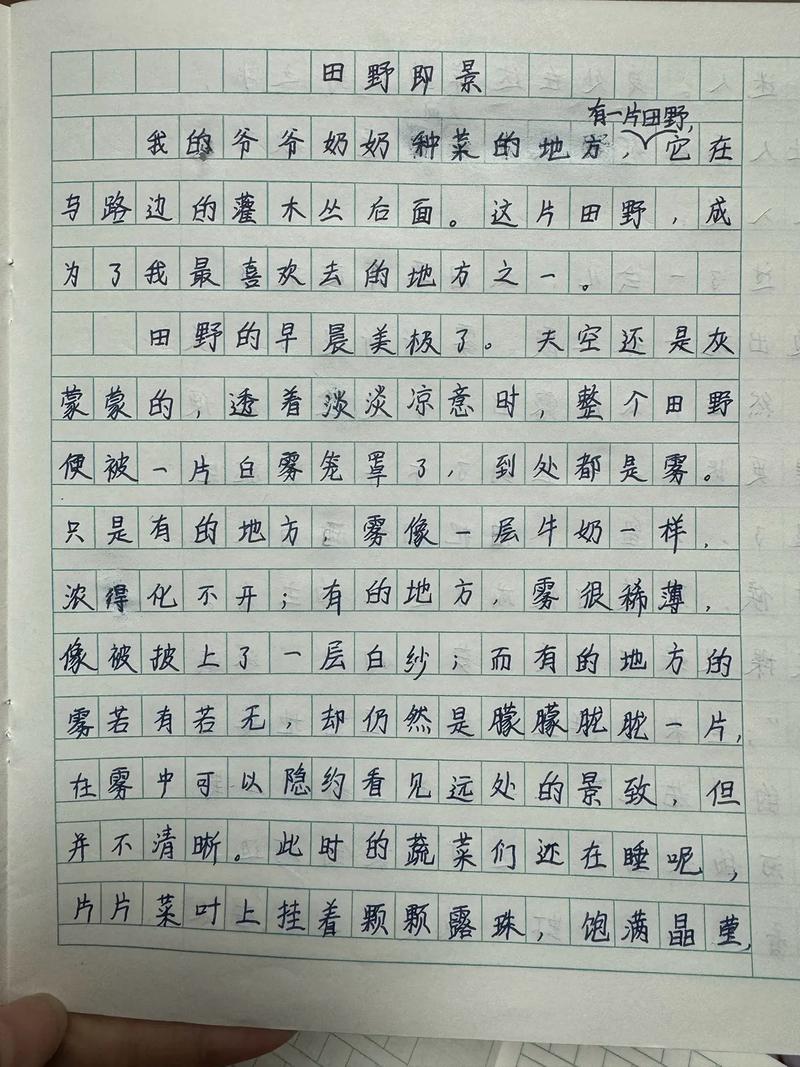 田野即景
有一片田野,
我的爷爷奶奶种菜的地方,它在
与路边的灌木丛后面。这片田野,成
为了我最喜欢去的地方之一。
田野的早晨美极了。天空还是灰
蒙蒙的,透着淡淡凉意时,整个田野
便被一片白雾笼罩了,到处都是雾。
只是有的地方,雾像一层牛奶一样,
浓得化不开;有的地方,雾很稀薄,
像被披上了一层白纱;而有的地方的
雾若有若无,却仍然是朦朦胧胧一片,
在雾中可以隐约看见远处的景致,但
并不清晰。此时的蔬菜们还在睡呢,
片片菜叶上挂着颗颗露珠,饱满晶莹,